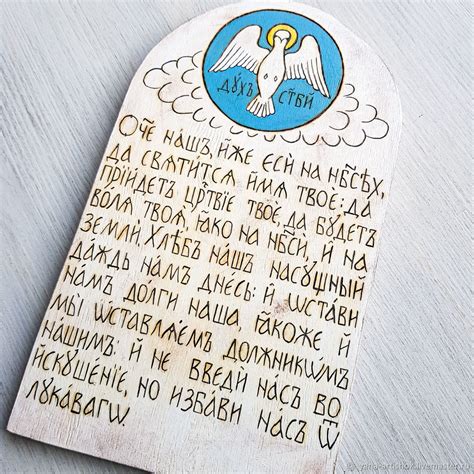 дꙋхъ ст҃ый
Ѻ҆́ч҃е нашъ, и҆́же є҆сѝ на нб҃сѣхъ,
да свѧти́тсѧ и҆́мѧ твоѐ: да
прїи́детъ цр҇твїе твоѐ, да бꙋдетъ
во́лѧ твоѧ̀, ꙗ҆́кѡ на нб҃сѝ, и҆ на
землѝ. Хлѣ́бъ нашъ насꙋщный
да́ждь намъ дне́сь: и҆ ѡ҆ста́ви
на́мъ до́лги наша, ꙗ҆́коже и҆
мы̀ ѡ҆ставлѧ́емъ должникѡмъ
нашимъ: и҆ не введѝ на́съ во
и҆скꙋше́нїе, но изба́ви насъ ѿ
лꙋка́вагѡ.